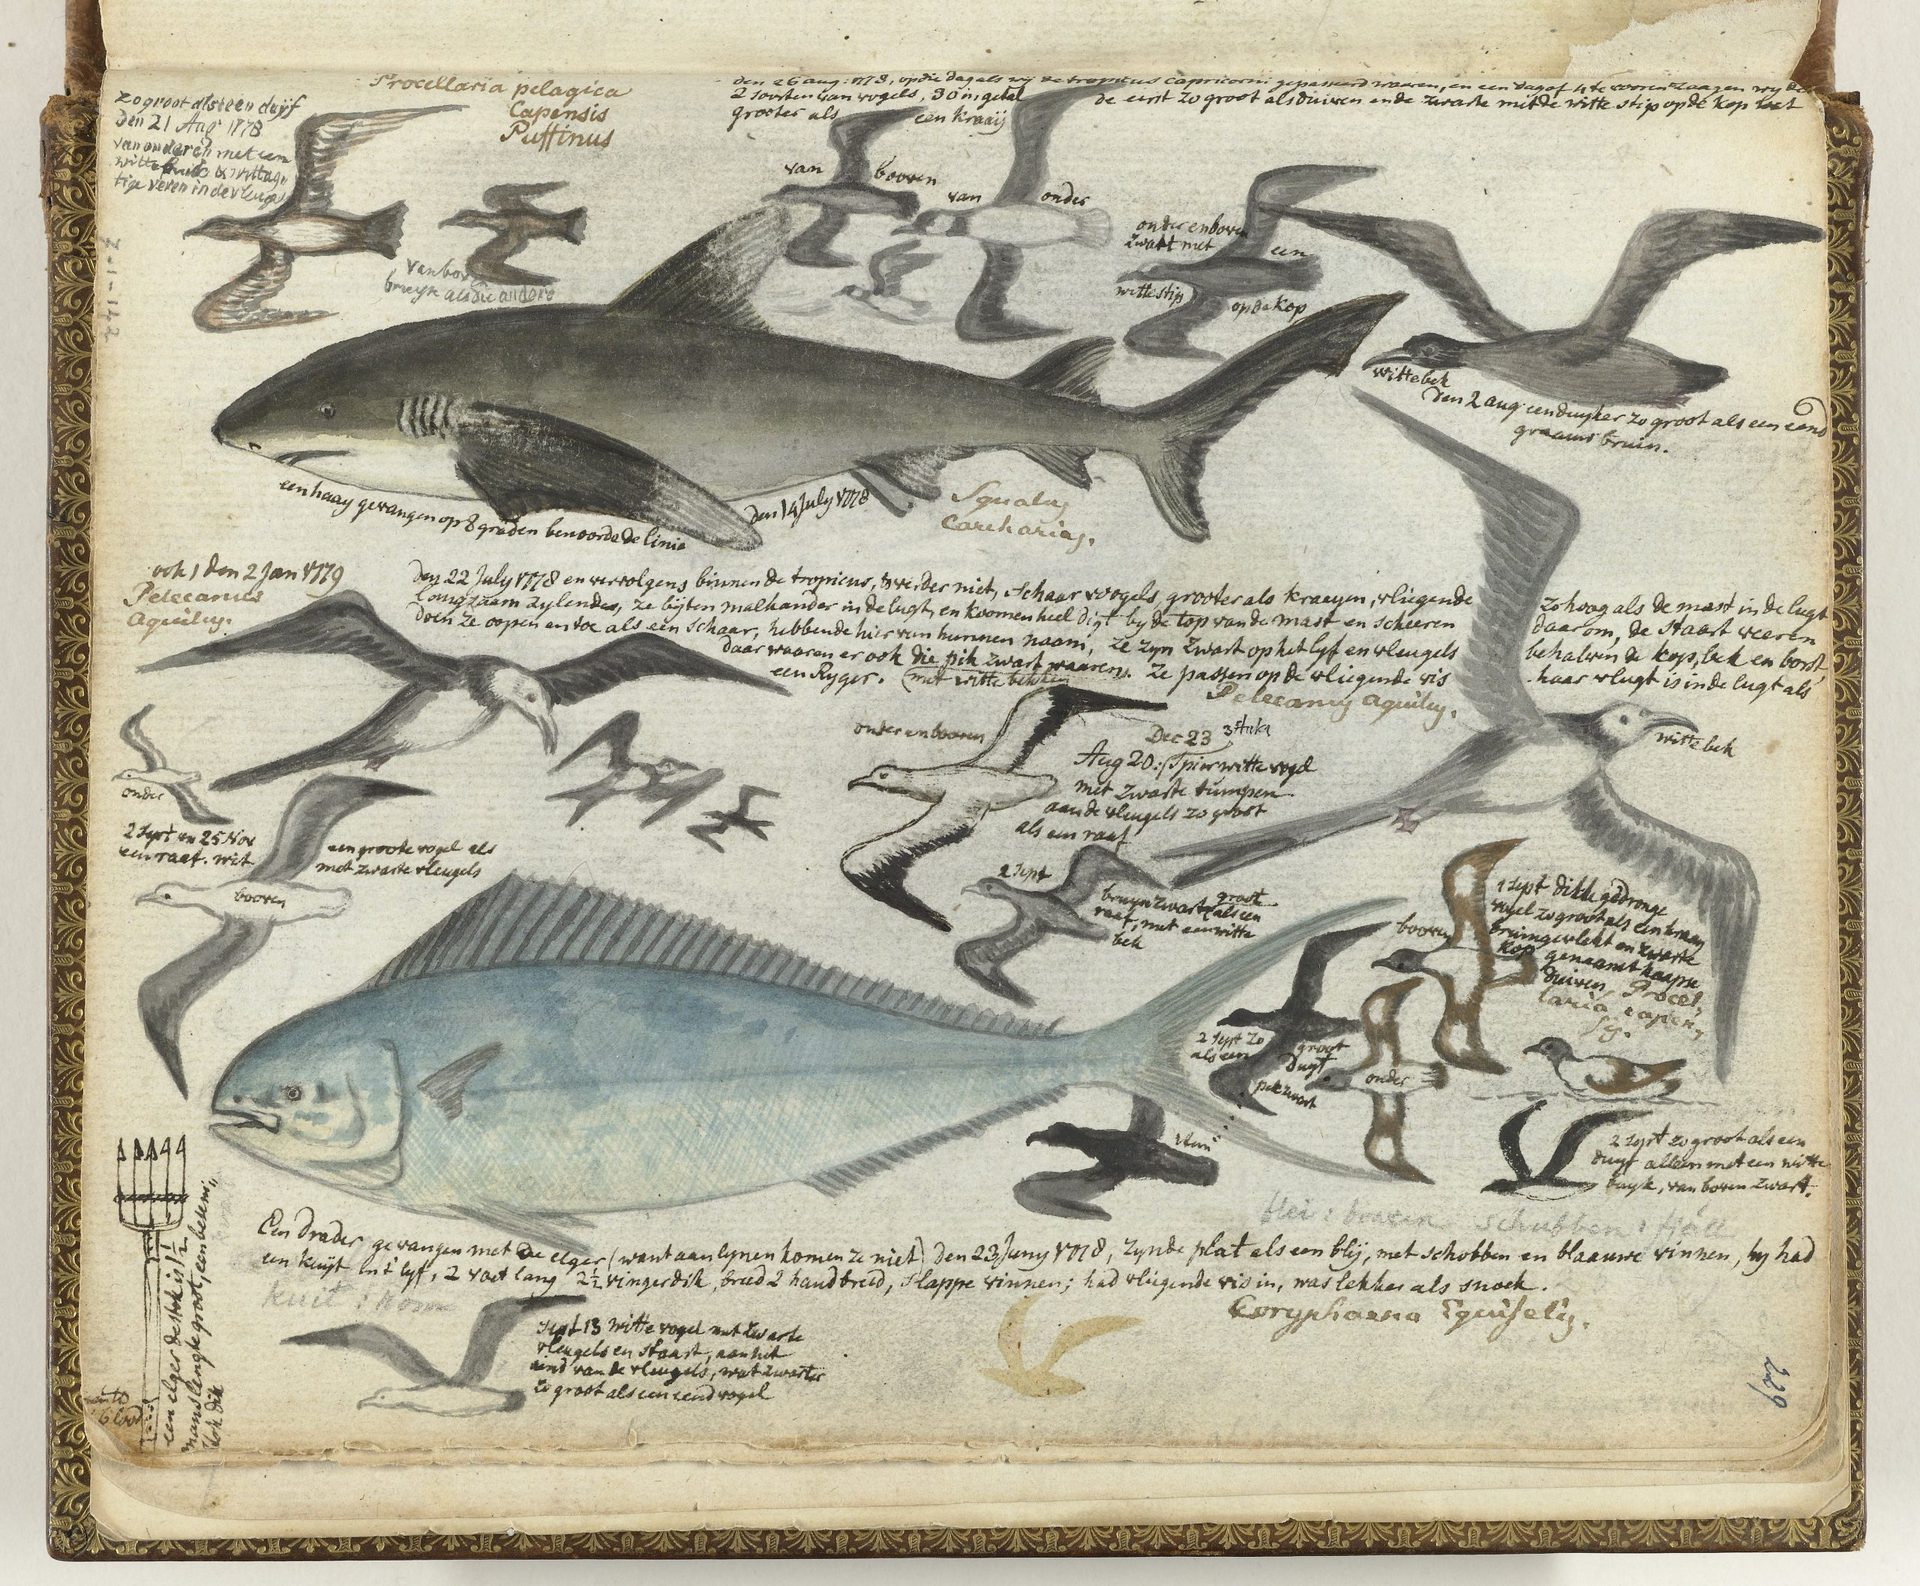 zo groot als een duyf
den 21 Aug 1778
van onderen met een
witte buik & wittag
tige veren in de vleugel
Procellaria pelagica
Capensis
Puffinus
van bov
bruyn als die andere
den 26 aug: 1778, op die dag als wy de tropicus Capricorni gepasseerd waaren, en een dag of 4 te vooren zaagen wy de
2 soorten van vogels, 30 in getal de eerst zo groot als duiven en de zwarte mit de witte stip op de kop wat
grooter als een kraaij
van booven
van onder
onder en boven
zwart met een
witte stip op de kop
witte bek
den 2 aug: een duyker zo groot als een eend
graauw bruin.
een haay gevangen op 8 graden benoorde de linie
den 14 July 1778
Squalus
Carcharias.
ook 1 den 2 Jan 1779
Pelecanus
Aquilus.
den 22 July 1778 en vervolgens binnen de tropicus, verder niet, schaar voogels, grooter als kraayen, vliegende zo hoog als de mast in de lugt
langzaam zylende, ze byten malkander in de lugt, en koomen heel digt by de top van de mast en scheeren daarom, de staart veeren
doen ze oopen en toe als een schaar, hebbende hier van hunnen naam, ze zyn zwart op het lyf en vleugels behalven de kop, bek en borst,
daar waaren er ook die pik zwart waaren, ze passen op de vliegende vis haar vlugt is in de lugt als
een Ryger. (met witte bekken)
Pelecanus Aquilus.
witte bek
onder en booven
Dec 23 3 stuks
Aug 20: Spierwitte vogel
met zwarte tumpen
aan de vleugels zo groot
als een raaf
onder
2 Sept en 25 Nov
een raaf. wit
een groote vogel als
met zwarte vleugels
booven
2 Sept
bruyn zwart groot
als een
raaf, met een witte
bek
1 Sept dikke gedronge
vogel zo groot als een kraay
bruin gevlekt en zwarte
kop genaamt kaapse
duiven, Procel
laria capen
sis.
booven
onder
2 Sept zo groot
als een duyf
pik zwart
2 Sept zo groot als een
duyf alleen met een witte
buyk, van boven zwart.
blei: brasem schubben:
Een Drader gevangen met de elger (want aan lynen komen ze niet) den 23 Juny 1778, zynde plat als een blij, met schobben en blaauwe vinnen, hy had
een kuyt in 't lyf, 2 voet lang 2½ vinger dik, breed 2 hand breed, slappe vinnen; had vliegende vis in, was lekker als snoek.
kuit: hom
Coryphaena Equiselis.
een elger de stok is 1½
mans lengte groot, en beneeden
lood
Sept 13 witte vogel met zwarte
vleugels en staart, aan het
eind van de vleugels, wat zwarter
zo groot als een eendvogel
229